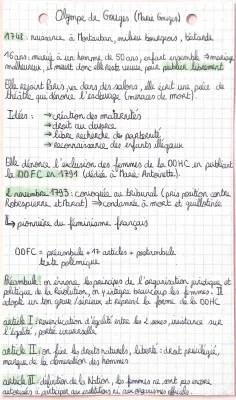 Olympe de Gouges (Marie Gouges)
1748 : naissance, à Montauban, milieu bourgeois, bâtarde
16 ans : mariée à un homme de 50 ans, enfant ensemble → mariage
malheureux, il meurt donc elle reste veuve pour publier librement
Elle rejoint Paris, va dans des salons, elle écrit une pièce de
théâtre qui dénonce l'esclavage (menaces de mort).
Idées : → création des maternités
→ droit au divorce
→ libre recherche de paternité
→ reconnaissance des enfants illégaux
Elle dénonce l'exclusion des femmes de la DDHC en publiant
la DDFC en 1791 (dédiée à Marie-Antoinette).
2 novembre 1793 : convoquée au tribunal (pris position contre
Robespierre et Marat) → condamnée à mort et guillotinée
↳ pionnière du féminisme français
DDFC = préambule + 17 articles + postambule
texte polémique
Préambule : on énonce les principes de l'organisation juridique et
politique de la révolution, on y intègre beaucoup les femmes. Il
adopte un ton grave/sérieux et reprend la forme de la DDHC
article I : revendication d'égalité entre les 2 sexes, insistance sur
l'égalité, portée universelle
article II : on fixe les droits naturels, liberté : droit privilégié,
marque de la domination des hommes
article III : définition de la Nation, les femmes ne sont pas encore
autorisées à participer aux